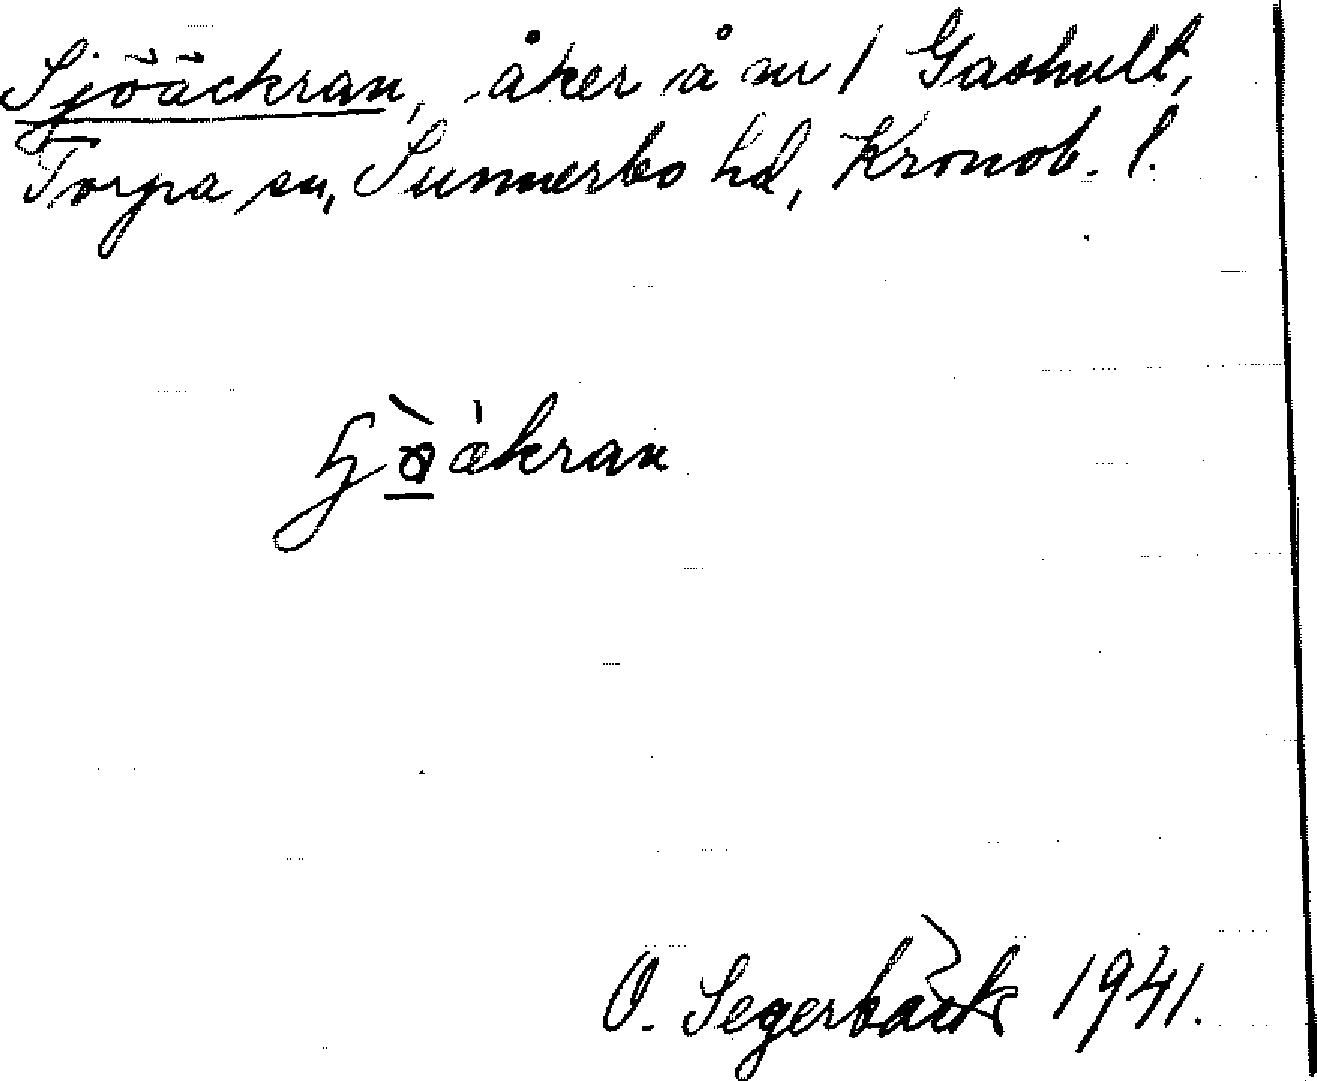 Sjöäckran, åker å nr 1 Gashult,
Torpa sn, Sunnerbo hd, Kronob. l.
ɧö̀ǿkran
O. Segerbäck 1941.